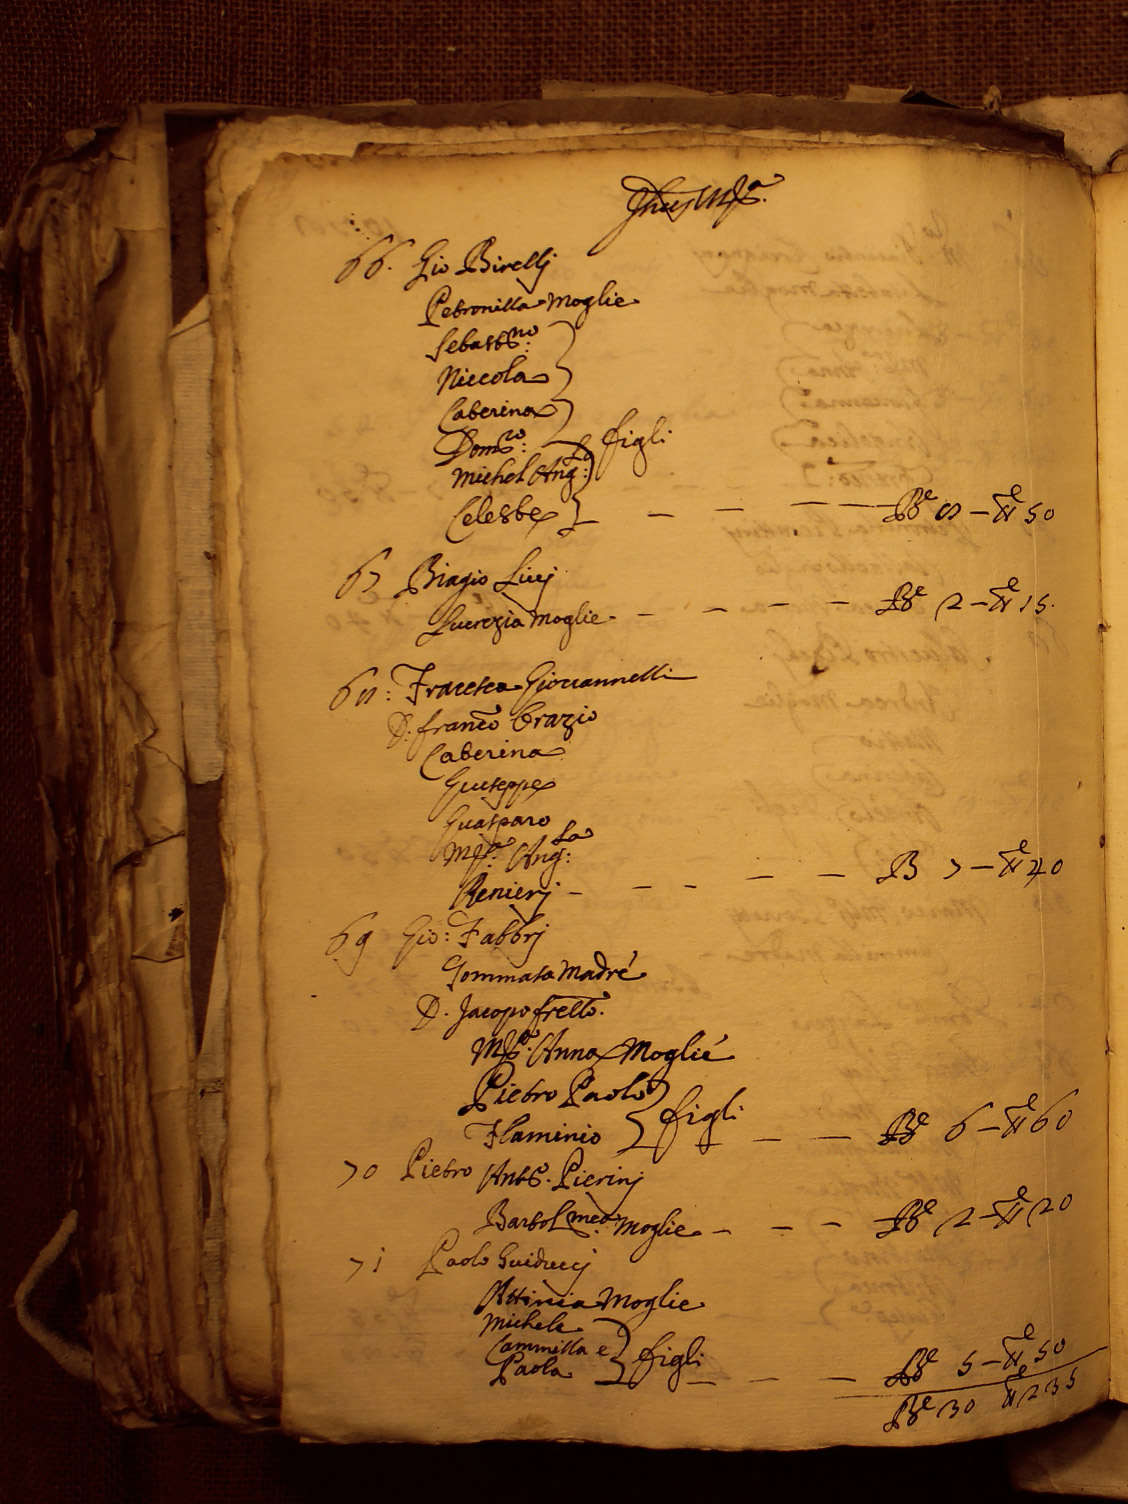 Jhus Mᵃ.
66. Gio Birellj
Petronilla Moglie
Sebastⁿᵒ:
Niccola
Caterina
Domᶜᵒ: figli
Michel Angˡᵒ:
Celeste — — — — Bᵉ 8 — ᵉ 50
67 Biagio Lucj
Lucrezia Moglie — — — — Bᵉ 2 — ᵉ 15.
68: Fracesca Giovannelli
D. Franco Orazio
Caterina
Giuseppe
Guasparo
Mᵃ: Angˡᵃ:
Renierj — — — — — B 7 — ᵉ 40
69 Gio: Fabbrj
Tommasa Madre
D. Jacopo frello.
Mᵃ: Anna Moglie
Pietro Paolo
Flaminio figli — — Bᵉ 6 — ᵉ 60
70 Pietro Antᵒ. Pierinj
Bartolmea: Moglie — — — Bᵉ 2 — ᵉ 20
71 Paolo Guiduccj
Attinia Moglie
Michele
Cammilla e figli
Paola — — — Bᵉ 5 — ᵉ 50
Bᵉ 30 ᵉ 235